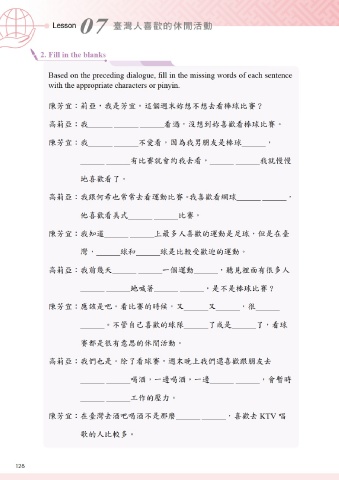 Lesson 07 臺灣人喜歡的休閒活動
2. Fill in the blanks
Based on the preceding dialogue, fill in the missing words of each sentence
with the appropriate characters or pinyin.
陳芳宜：莉亞，我是芳宜。這個週末妳想不想去看棒球比賽？
高莉亞：我______ ______ ______看過。沒想到妳喜歡看棒球比賽。
陳芳宜：我______ ______不愛看。因為我男朋友是棒球______，
______ ______有比賽就會約我去看。______ ______我就慢慢
地喜歡看了。
高莉亞：我跟何希也常常去看運動比賽。我喜歡看網球______ ______，
他喜歡看美式______ ______比賽。
陳芳宜：我知道______ ______上最多人喜歡的運動是足球，但是在臺
灣，______球和______球是比較受歡迎的運動。
高莉亞：我前幾天______ ______一個運動______，聽見裡面有很多人
______ ______地喊著______ ______，是不是棒球比賽？
陳芳宜：應該是吧。看比賽的時候，又______又______，很______
______。不管自己喜歡的球隊______了或是______了，看球
賽都是很有意思的休閒活動。
高莉亞：我們也是。除了看球賽，週末晚上我們還喜歡跟朋友去
______ ______喝酒。一邊喝酒，一邊______ ______，會暫時
______ ______工作的壓力。
陳芳宜：在臺灣去酒吧喝酒不是那麼______ ______，喜歡去 KTV 唱
歌的人比較多。
126